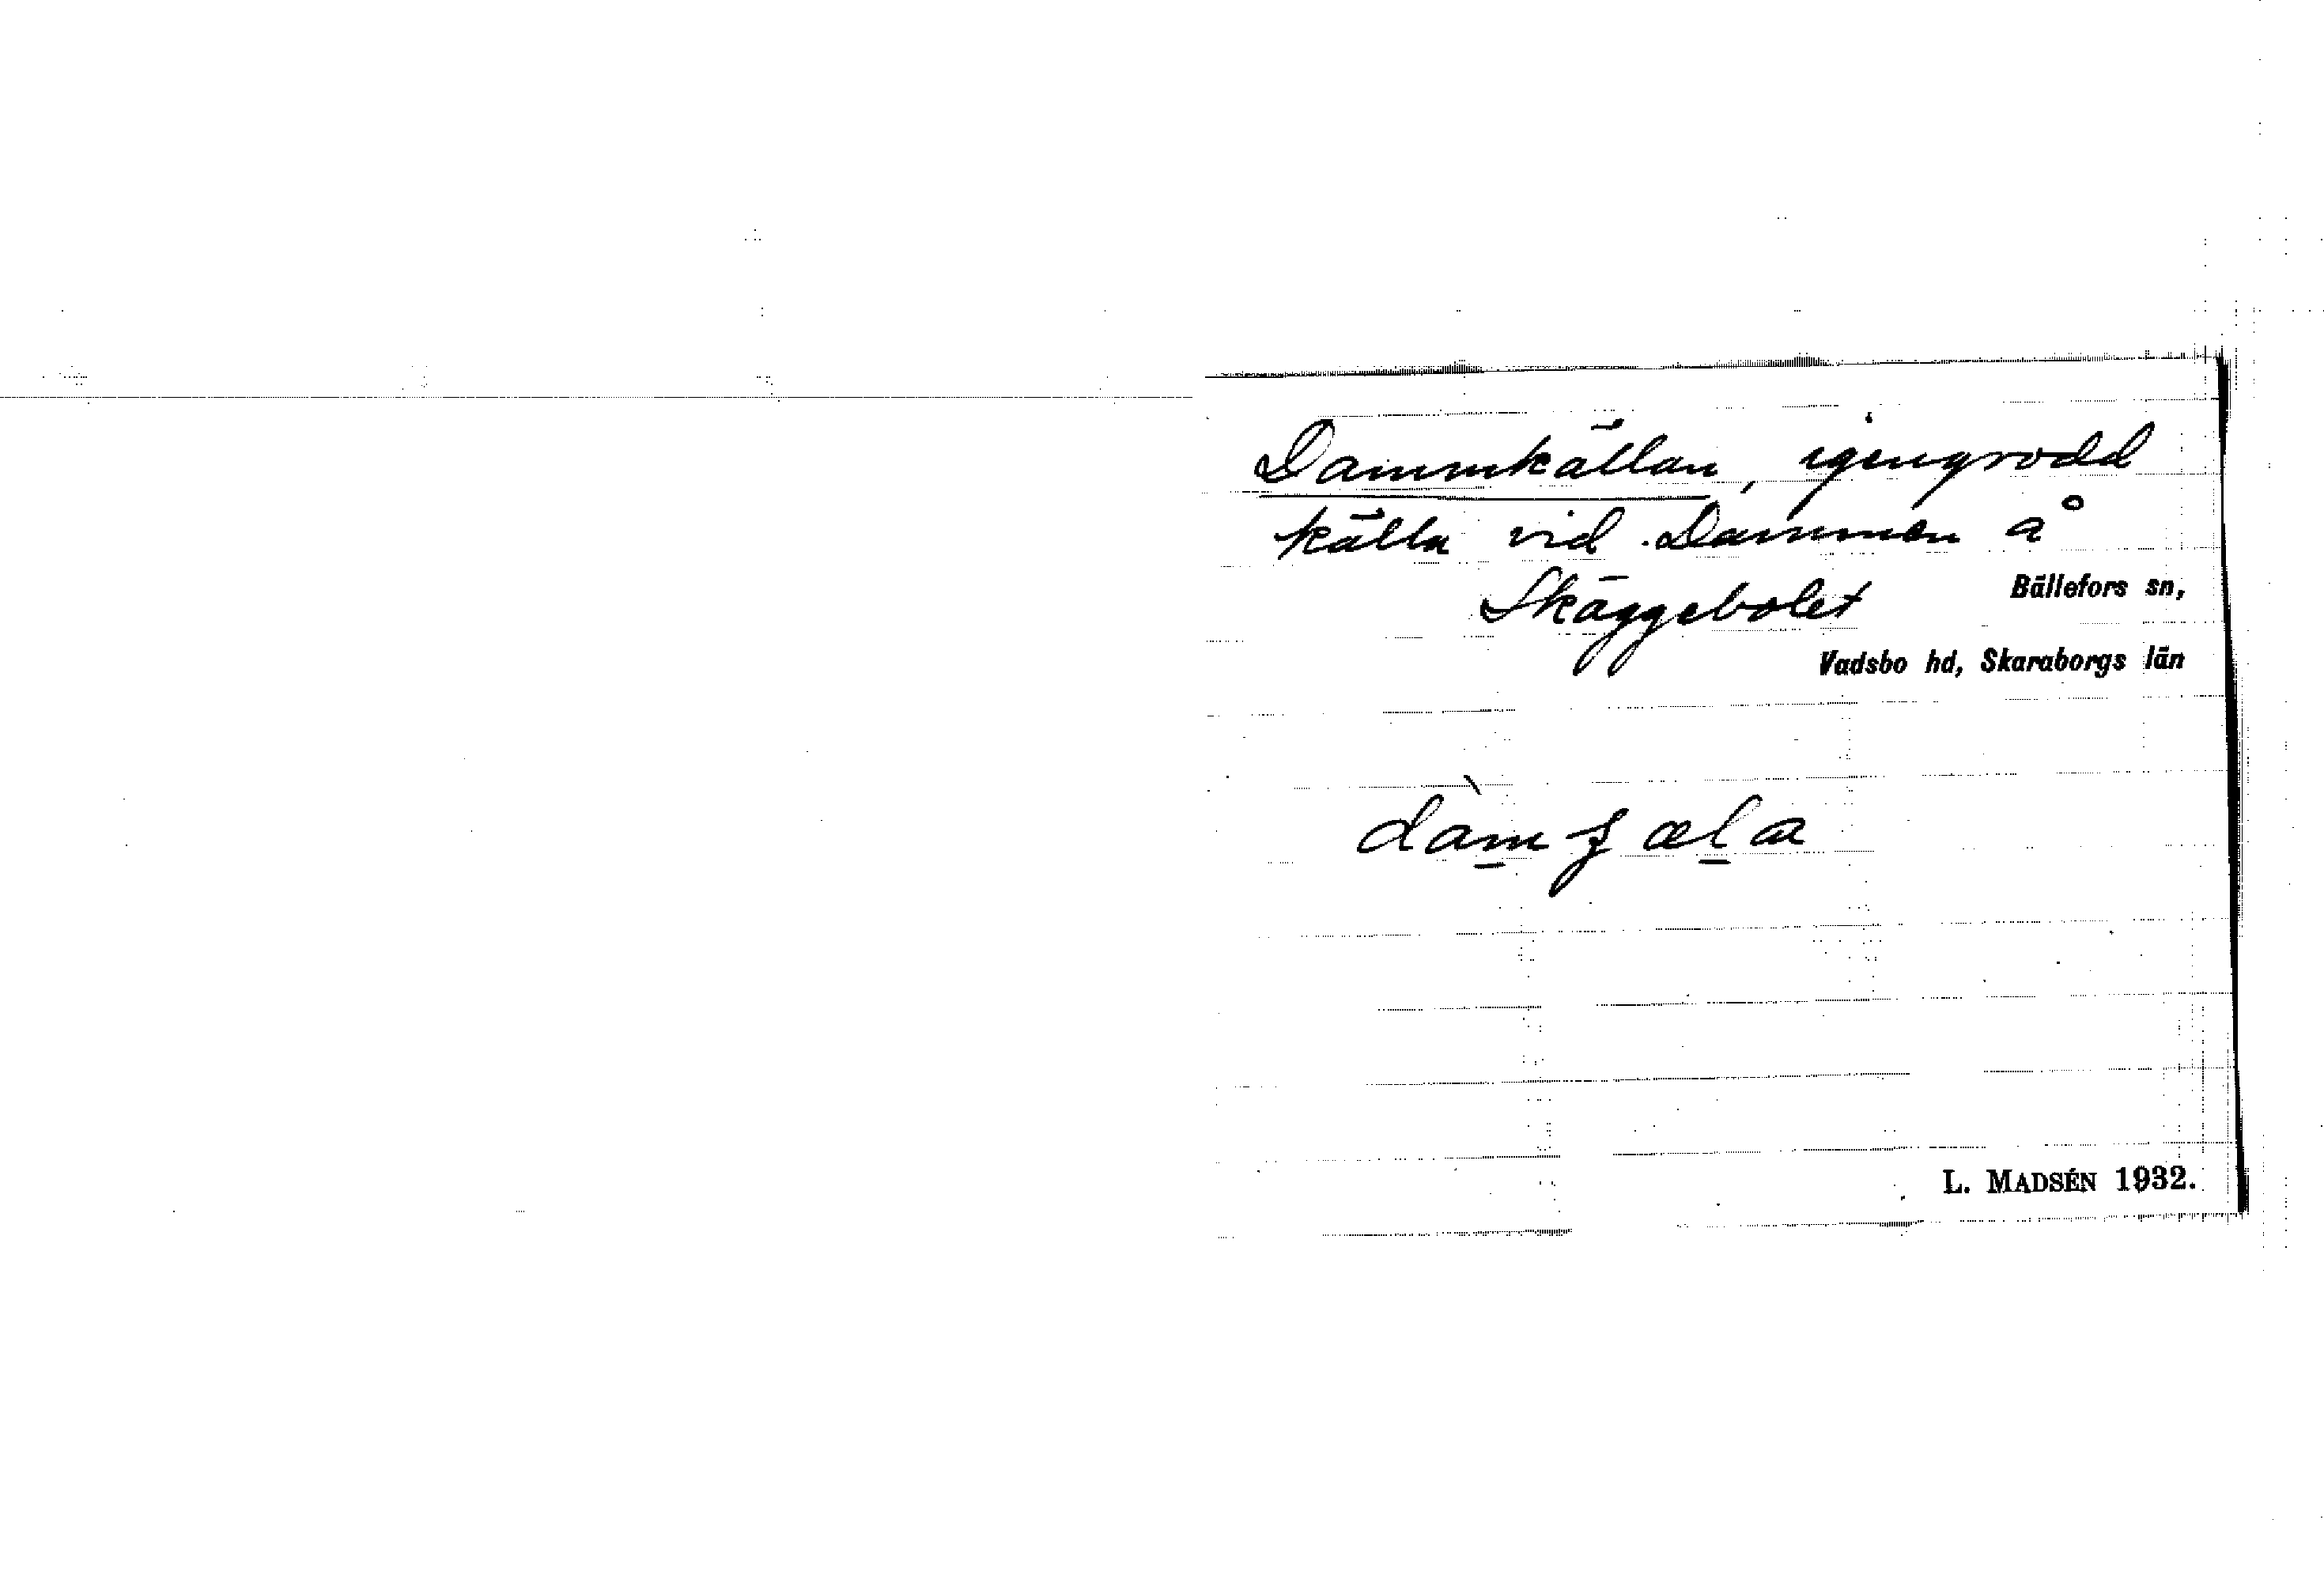 Dammkällan, igengrodd
källa vid Dammen å
Skäggebolet Bällefors sn,
Vadsbo hd, Skaraborgs län
dàmʃæla
L. MADSÉN 1932.